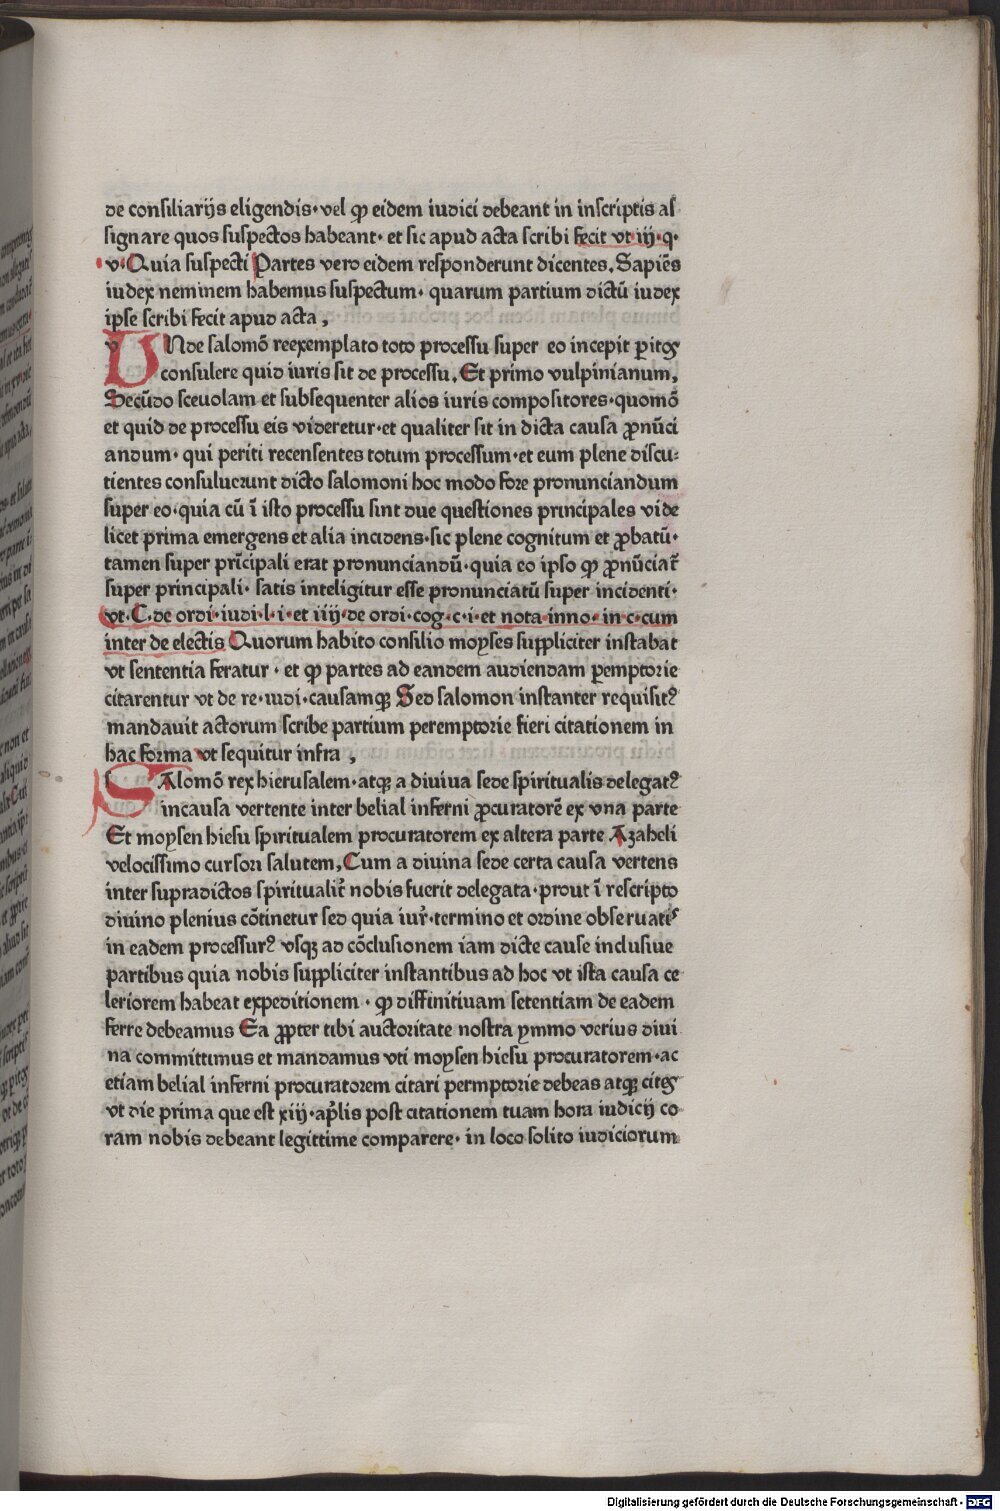 de consiliarijs eligendis· vel ꝙ eidem iudici debeant in inscriptis as
signare quos suspectos habeant· et sic apud acta scribi fecit vt· iij·q·
v· Quia suspecti Partes vero eidem responderunt dicentes. Sapiēs
iudex neminem habemus suspectum· quarum partium dictū iudex
ipse scribi fecit apud acta ,
UNde salomō reexemplato toto processu super eo incepit ꝑitos
consulere quid iuris sit de processu. Et primo vulpinianum,
Secūdo scevolam et subsequenter alios iuris compositores· quomō
et quid de processu eis videretur· et qualiter sit in dicta causa ꝓnūci
andum· qui periti recensentes totum processum· et eum plene discu⸗
tientes consuluerunt dicto salomoni hoc modo fore pronunciandum
super eo· quia cū ī isto processu sint due questiones principales vide
licet prima emergens et alia incidens· sic plene cognitum et ꝓbatū·
tamen super prīcipali erat pronunciandū· quia eo ipso ꝙ ꝓnūciat̄
super principali· satis inteligitur esse pronunciatū super incidenti·
vt· C· de ordi· iudi· l· i· et iiij· de ordi· cog· c· i· et nota inno· in· c· cum
inter de electis Quorum habito consilio moyses suppliciter instabat
vt sententia feratur · et ꝙ partes ad eandem audiendam ꝑemptorie
citarentur vt de re· iudi· causamqꝫ Sed salomon instanter requisitꝰ
mandauit actorum scribe partium peremptorie fieri citationem in
hac forma vt sequitur infra ,
SAlomō rex hierusalem· atqꝫ a diuiua sede spiritualis delegatꝰ
incausa vertente inter belial inferni ꝓcuratorē ex vna parte
Et moysen hiesu spiritualem procuratorem ex altera parte Azaheli
velocissimo cursori salutem, Cum a diuina sede certa causa vertens
inter supradictos spiritualit̄ nobis fuerit delegata· prout ī rescripto
diuino plenius cōtinetur sed quia iur̄· termino et ordine obseruatis
in eadem processurꝰ vsqꝫ ad cōclusionem iam dicte cause inclusiue
partibus quia nobis suppliciter instantibus ad hoc vt ista causa ce
leriorem habeat expeditionem · ꝙ diffinitiuam setentiam de eadem
ferre debeamus Ea ꝓpter tibi auctoritate nostra ymmo verius diui
na committimus et mandamus vti moysen hiesu procuratorem· ac
etiam belial inferni procuratorem citari permptorie debeas atqꝫ cites
vt die prima que est xiij· ap̄lis post citationem tuam hora iudicij co
ram nobis debeant legittime comparere· in loco solito iudiciorum
Digitalisierung gefördert durch die Deutsche Forschungsgemeinschaft - DFG